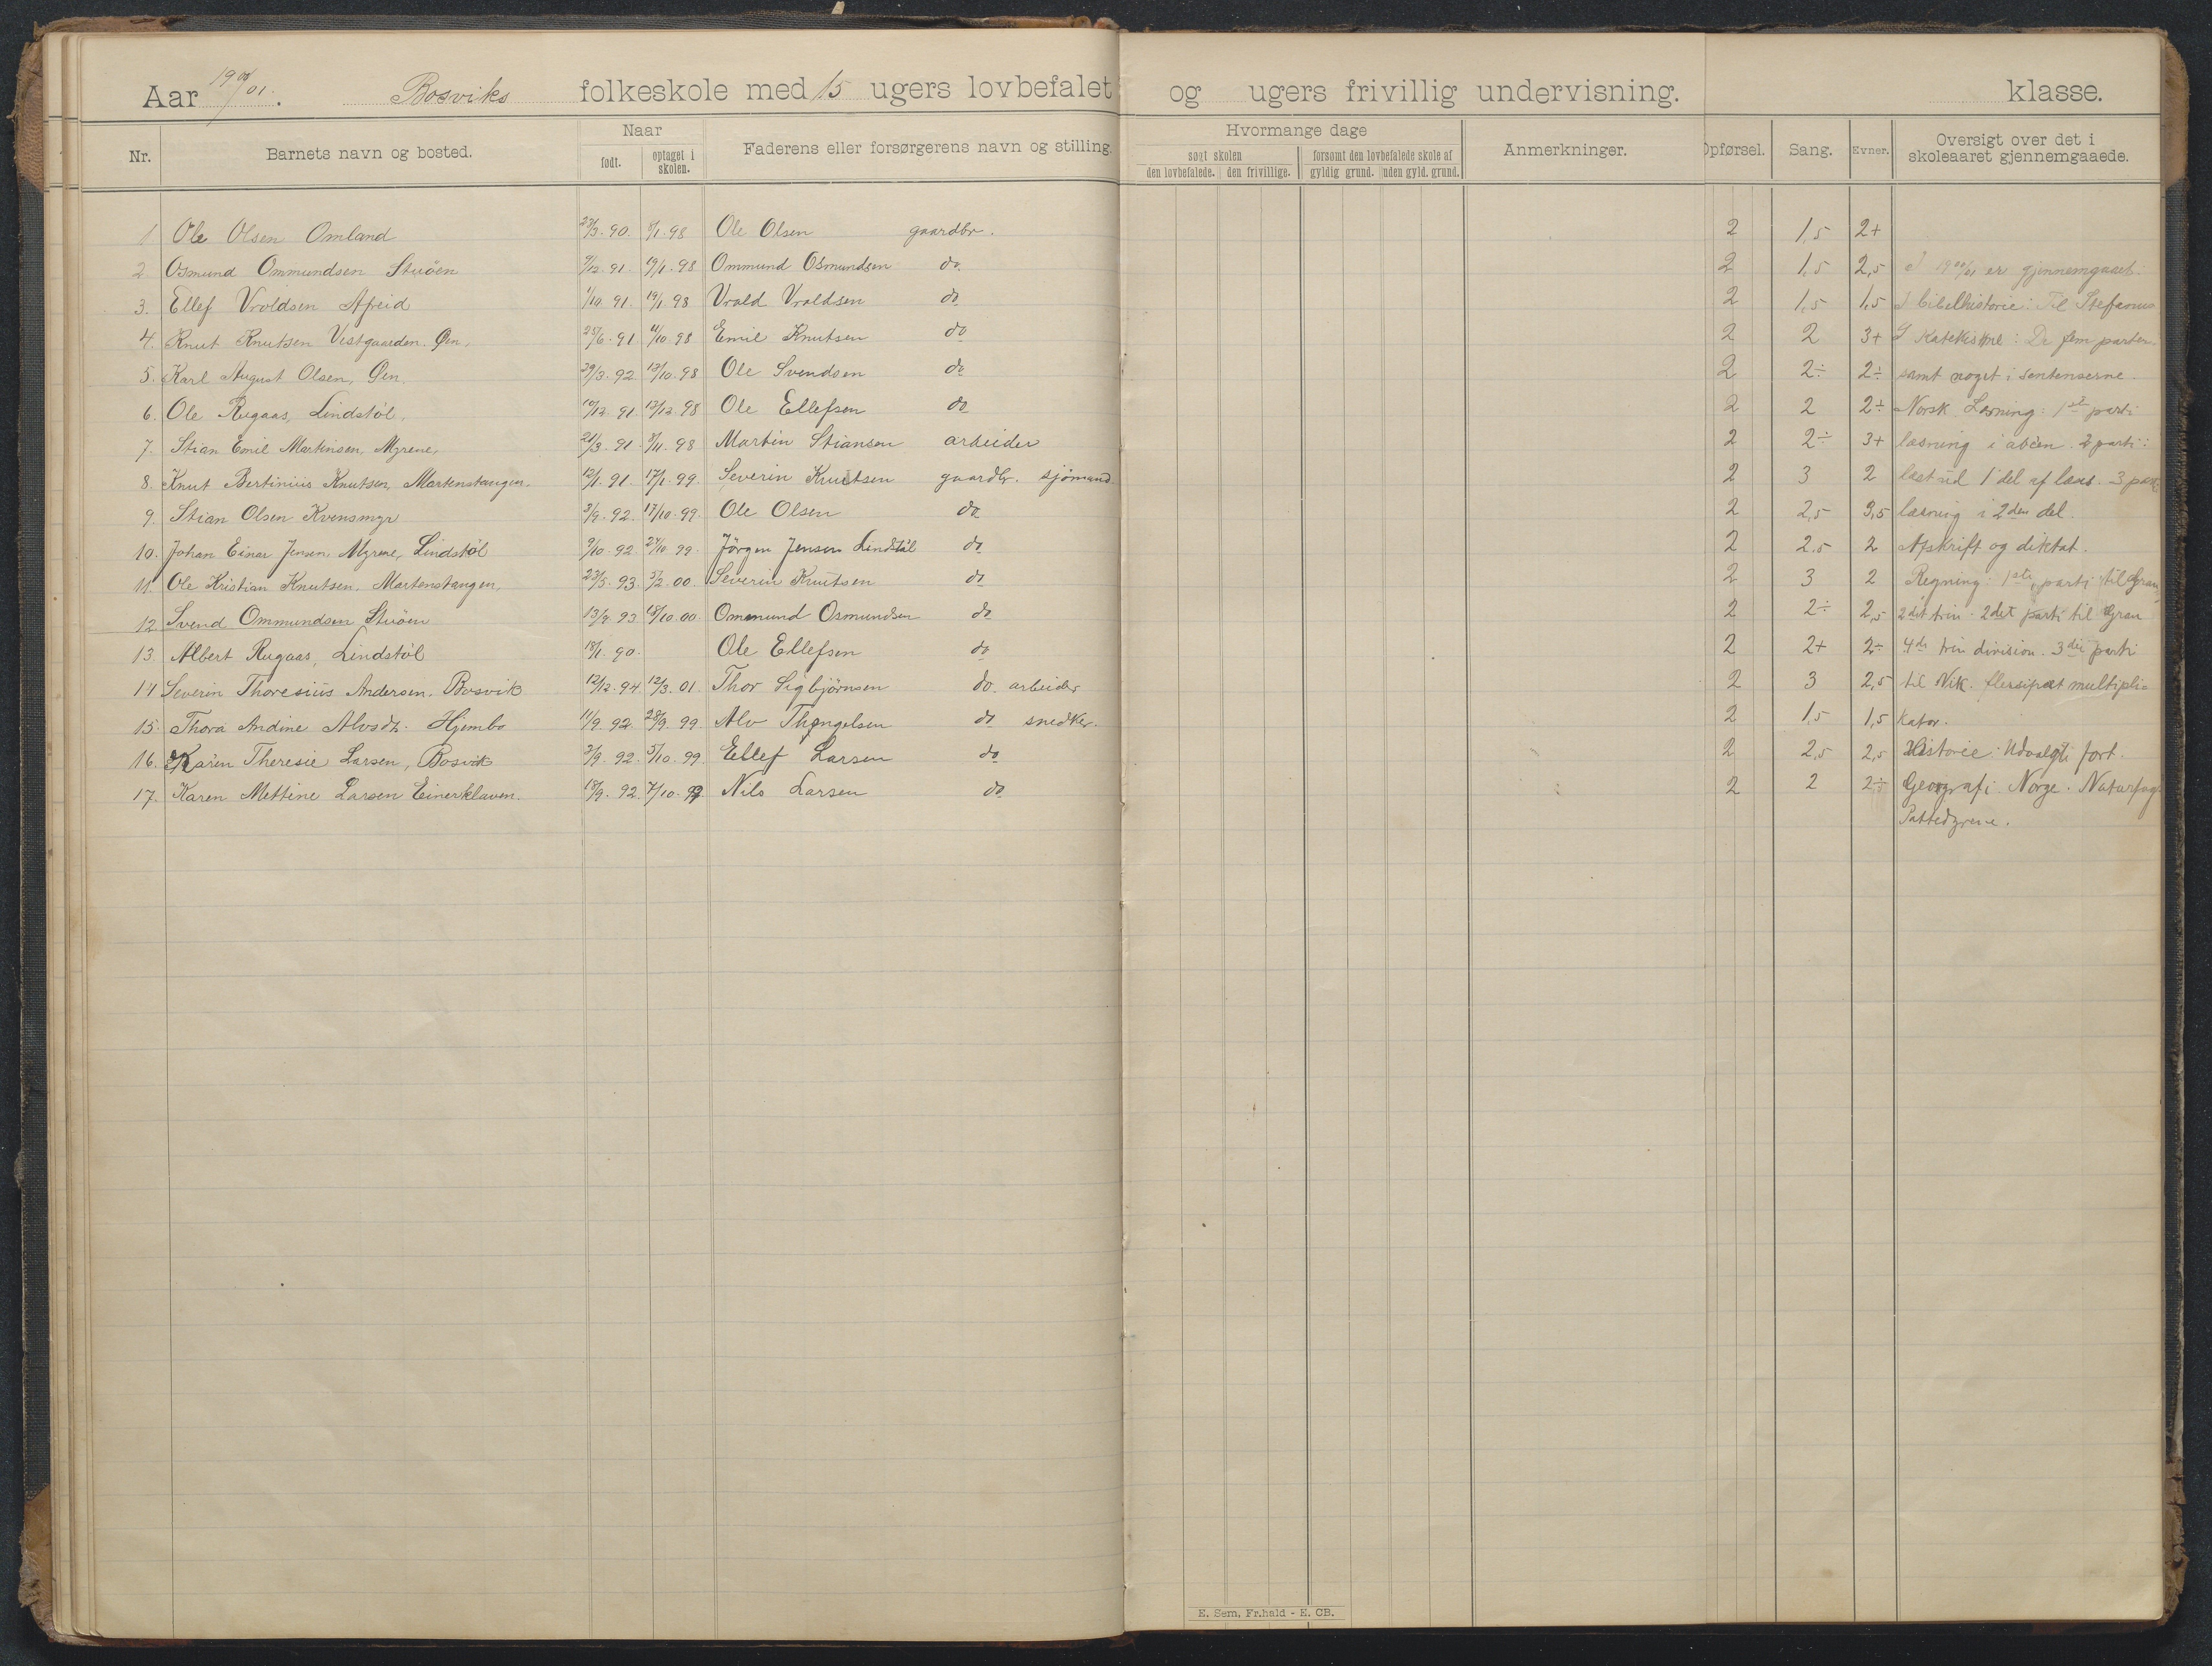 Aar 19 00/01. Bosviks folkeskole med 15 ugers lovbefalet og ugers frivillig undervisning. klasse.
Nr. Barnets navn og bosted. Naar født. optaget i skolen. Faderens eller forsørgerens navn og stilling. Hvormange dage søgt skolen den lovbefalede. den frivillige. forsømt den lovbefalede skole af gyldig grund. uden gyld. grund. Anmerkninger. Opførsel. Sang. Evner. Oversigt over det i skoleaaret gjennemgaaede.
1 Ole Olsen Omland 27/3. 90. 8/1. 98 Ole Olsen gaardbr. 2 1,5 2+
2 Osmund Ommundsen Stuöen 9/12. 91. 19/1. 98 Ommund Osmundsen do. 2 1,5 2,5 I 1900/01 er gjennemgaaet:
3. Ellef Vroldsen Afreid 1/10 91. 19/1 98 Vrald Vraldsen do. 2 1,5 1,5 I bibelhistorie: Til Stefanus
4. Knut Knutsen Vestgaarden. Øen. 25/6. 91 11/10. 98 Emil Knutsen do 2 2 3+ I : De fem parter
5. Karl August Olsen, Øen. 29/3. 92. 13/10. 98 Ole Svendsen do 2 2÷ 2÷ samt noget i sentenserne.
6. Ole Rugaas, Lindstöl. 10/12. 91. 13/12. 98 Ole Ellefsen do 2 2 2÷ Norsk Læsning: 1ste parti
7. Stian Emil Martinsen, Myrene, 21/3. 91 8/11. 98 Martin Stiansen arbeider 2 2÷ 3+ læsning i abcen. 2 parti:
8. Knut Bertinius Knutsen, Martenstangen. 12/1. 91. 17/1. 99. Severin Knutsen gaardbr. sjömand 2 3 2 læst ud 1 del af læs. 3 part
9. Stian Olsen Kvensmyr 3/9. 92. 17/10. 99. Ole Olsen do 2 2,5 3,5 læsning i 2den del.
10. Johan Einar Jensen, Myrene, Lindstöl 9/10. 92. 24/10 99. Jörgen Jensen Lindstöl do 2 2.5 2 Afskrift og diktat.
11. Ole Kristian Knutsen. Martenstangen, 23/5. 93. 5/2. 00. Severin Knutsen do 2 3 2 Regning: 1ste parti til Gran
12 Svend Ommundsen Stuöen 13/9. 93 15/10. 00. Ommund Osmundsen do 2 2÷ 2,5 2det trin. 2det parti til Gran
13. Albert Rugaas, Lindstöl 18/1. 90. Ole Ellefsen do 2 2+ 2÷ 4de trin division. 3die parti
14 Severin Thoresius Andersen. Bosvik 12/12. 94. 12/3. 01. Thor Sigbjörnsen do. arbeider 2 3 2,5 til Nik. flersifret multipli=
15. Thora Andine Alvsdt. Hjembo 11/9. 92. 28/9. 99. Alv Thengelsen do snedker. 2 1,5 1,5 kator.
16. Karin Theresie Larsen, Bosvik 3/9. 92. 5/10. 99. Ellef Larsen do 2 2,5 2,5 Historie: Udvalgte fort.
17. Karen Mettine Larsen Einerklaven. 18/9. 92. 7/10. 99. Nils Larsen do 2 2 2÷ Geografi: Norge. Naturfag
Pattedyrene.
E. Sem, Fr.hald - E. CB.